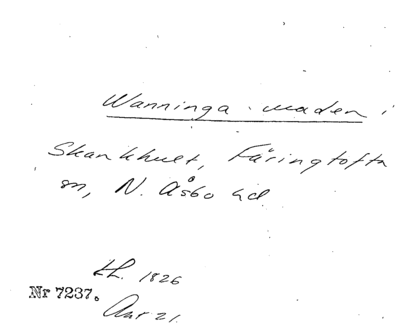 Wanninga-maden i
Skankhult, Fåringtofta
sn, N. Åsbo hd
LL. 1826
Nr 7237.
Anr 21.